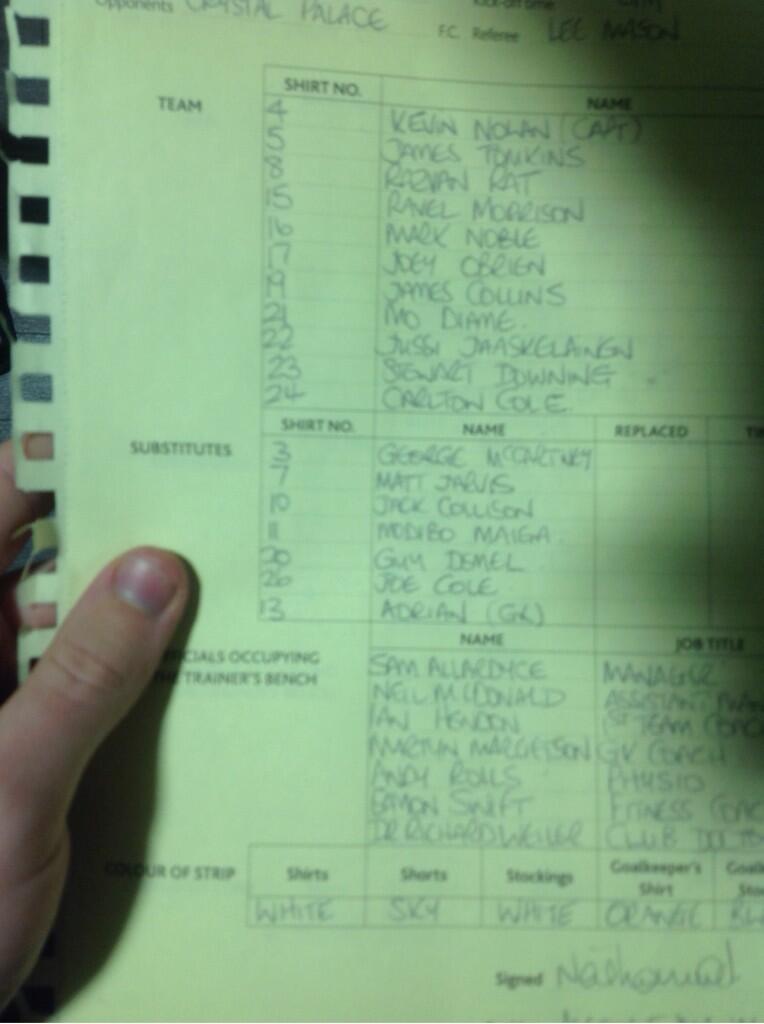 Opponents CRYSTAL PALACE Kick-off time
F.C. Referee LEE MASON
TEAM SHIRT NO. NAME
4 KEVIN NOLAN (CAPT)
5 JAMES TOMKINS
8 RAZVAN RAT
15 RAVEL MORRISON
16 MARK NOBLE
17 JOEY OBRIEN
19 JAMES COLLINS
21 MO DIAME.
22 JUSSI JAASKELAINEN
23 STEWART DOWNING
24 CARLTON COLE.
SUBSTITUTES SHIRT NO. NAME REPLACED
3 GEORGE MCCARTNEY
7 MATT JARVIS
10 JACK COLLISON
11 MODIBO MAIGA.
20 GUY DEMEL
26 JOE COLE
13 ADRIAN (GK)
NAME JOB TITLE
CIALS OCCUPYING SAM ALLARDYCE MANAGER
THE TRAINER'S BENCH NEIL MCDONALD ASSISTANT
IAN HENDON 1ST TEAM COACH
MARTYN MARGETSON GK COACH
ANDY ROLLS PHYSIO
EAMON SWIFT FITNESS COAC
DR RICHARD WEILER CLUB DOCTO
COLOUR OF STRIP Shirts Shorts Stockings Goalkeeper's Shirt
WHITE SKY WHITE ORANGE BL
Signed